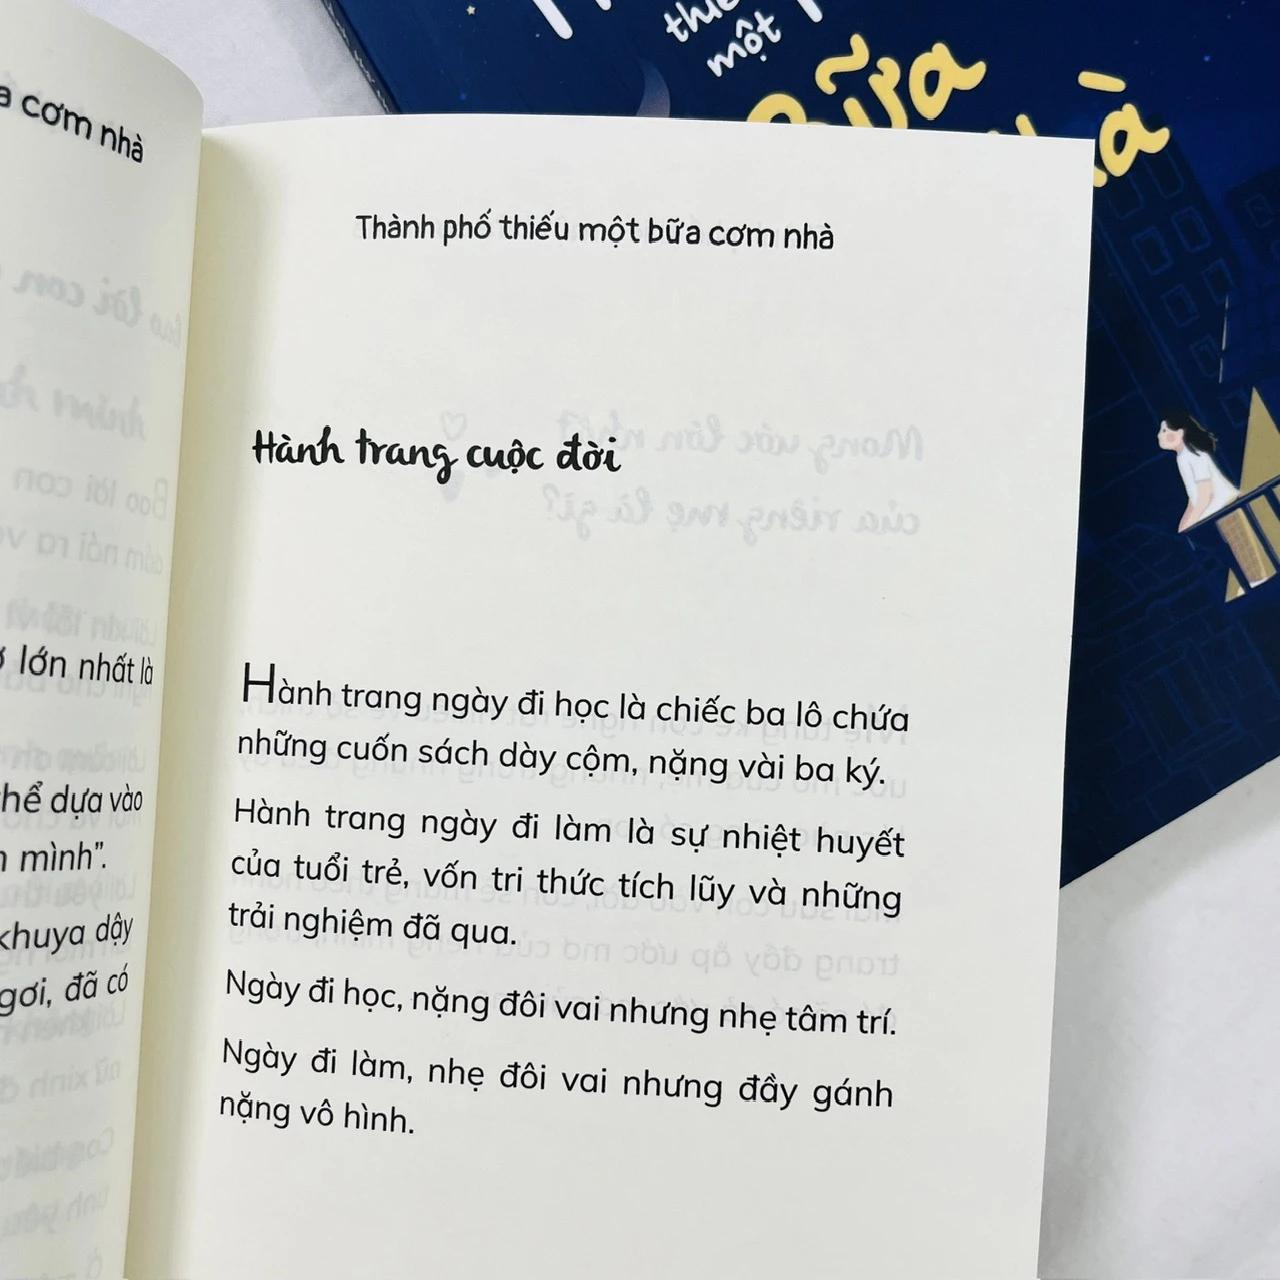 một
Bữa
à
cơm nhà
lớn nhất là
dựa vào
mình”.
khuya dậy
đã có
Thành phố thiếu một bữa cơm nhà
Hành trang cuộc đời
Hành trang ngày đi học là chiếc ba lô chứa
những cuốn sách dày cộm, nặng vài ba ký.
Hành trang ngày đi làm là sự nhiệt huyết
của tuổi trẻ, vốn tri thức tích lũy và những
trải nghiệm đã qua.
Ngày đi học, nặng đôi vai nhưng nhẹ tâm trí.
Ngày đi làm, nhẹ đôi vai nhưng đầy gánh
nặng vô hình.